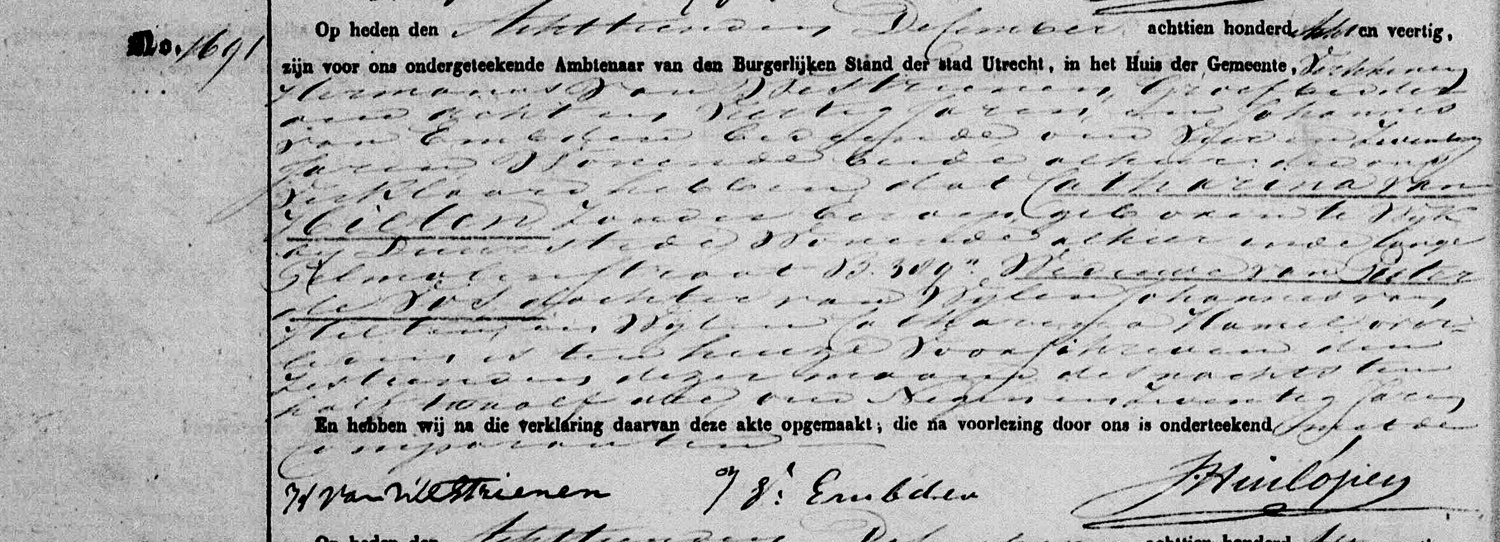 No. 1691
Op heden den Achttienden December achttien honderd Acht en veertig,
zijn voor ons ondergeteekende Ambtenaar van den Burgerlijken Stand der stad Utrecht, in het Huis der Gemeente, Verschenen
Hermanus van Westrienen,
oud acht en Veertig Jaren, en Johannes
van Embden bediende oud Vier en Zeventig
Jaren Wonende beide alhier die ons
Verklaard hebben dat Catharina van
Hielten Zonder beroep, geboren te Wijk
bij Duurstede Wonende alhier in de lange
Rosmolenstraat B. 389 Weduwe van Pieter
de Vos dochter van Wijlen Johannes van
Hielten, en Wijlen Catharina Hamel over=
leden, is ten huize Voorschreven den
Zestienden dezer maand des nachts ten
half twaalf ure oud Negen en Zeventig Jaren
En hebben wij na die verklaring daarvan deze akte opgemaakt, die na voorlezing door ons is onderteekend met de
Comparanten
H van Westrienen J V. Embden JHinlópen
Op heden den Achttienden December achttien honderd